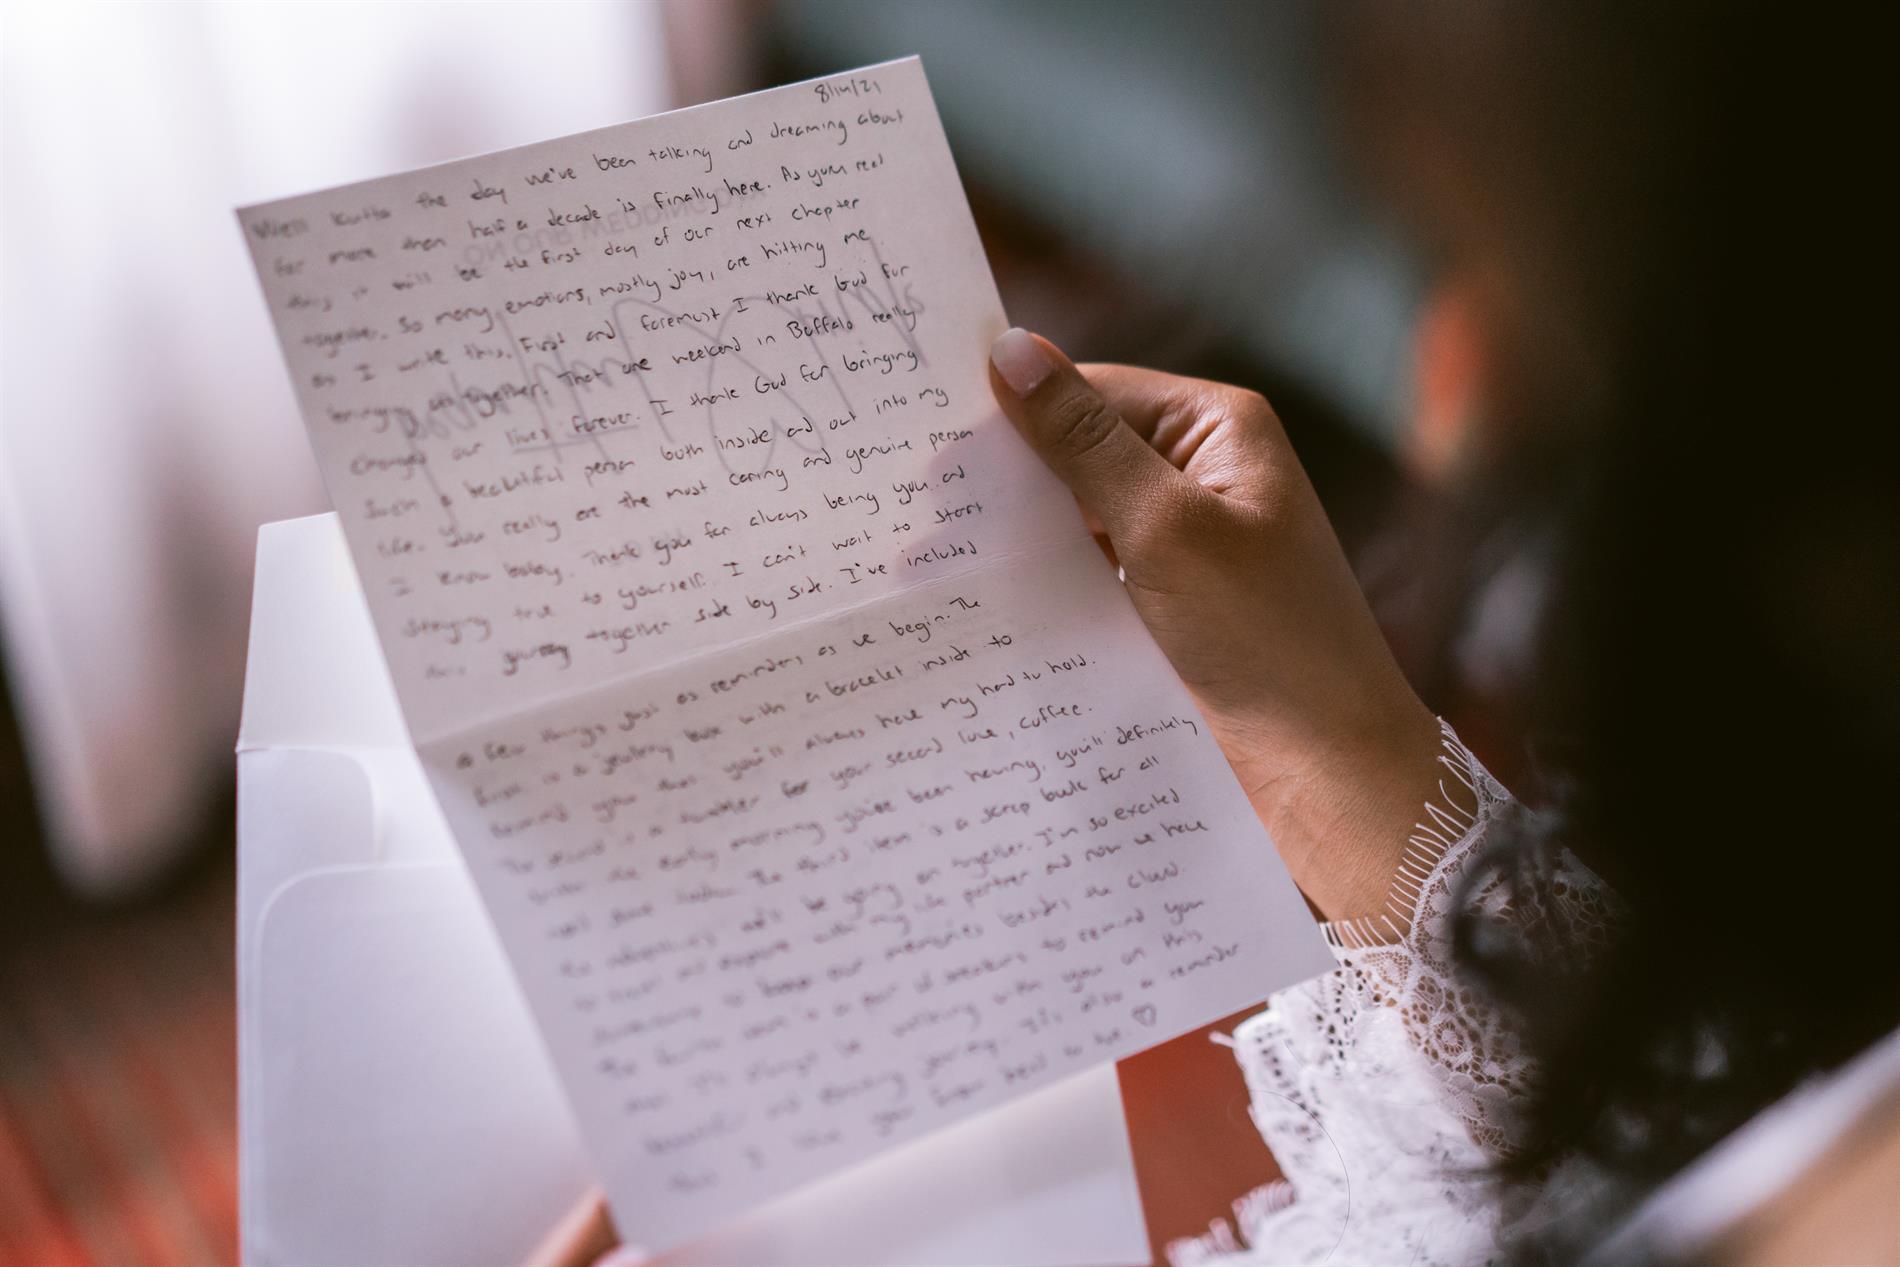 8/14/21
Well the day we've been talking and dreaming about
for more then half a decade is finally here. As you read
this it will be the first day of our next chapter
together. So many emotions, mostly joy, are hitting me
as I write this. First and foremost I thank God for
bringing us together. That one weekend in Buffalo really
changed our lives forever. I thank God for bringing
such a beautiful person both inside and out into my
life. You really are the most caring and genuine person
I know baby. Thank you for always being you and
staying true to yourself. I can't wait to start
this journey together side by side. I've included
a few things just as reminders as we begin. The
first is a jewelry box with a bracelet inside to
remind you that you'll always have my hand to hold.
The second is a tumbler for your second love, coffee.
With the early morning you've been having, you'll definitely
The third item is a scrap book for all
the adventures we'll be going on together. I'm so excited
to and explore with my life partner and now we have
something to our memories besides the cloud.
The fourth is a pair of sneakers to remind you
that I'll always be walking with you on this
beautiful and journey. It's also a reminder
that I love you from head to toe. ♡
ON OUR WEDDING DAY